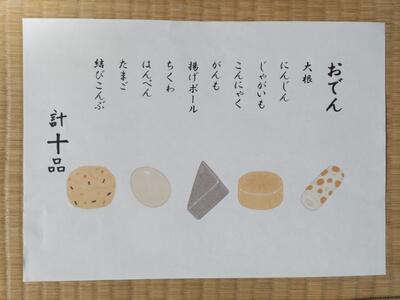 おでん
大根
にんじん
じゃがいも
こんにゃく
がんも
揚げボール
ちくわ
はんぺん
たまご
結びこんぶ
計十品